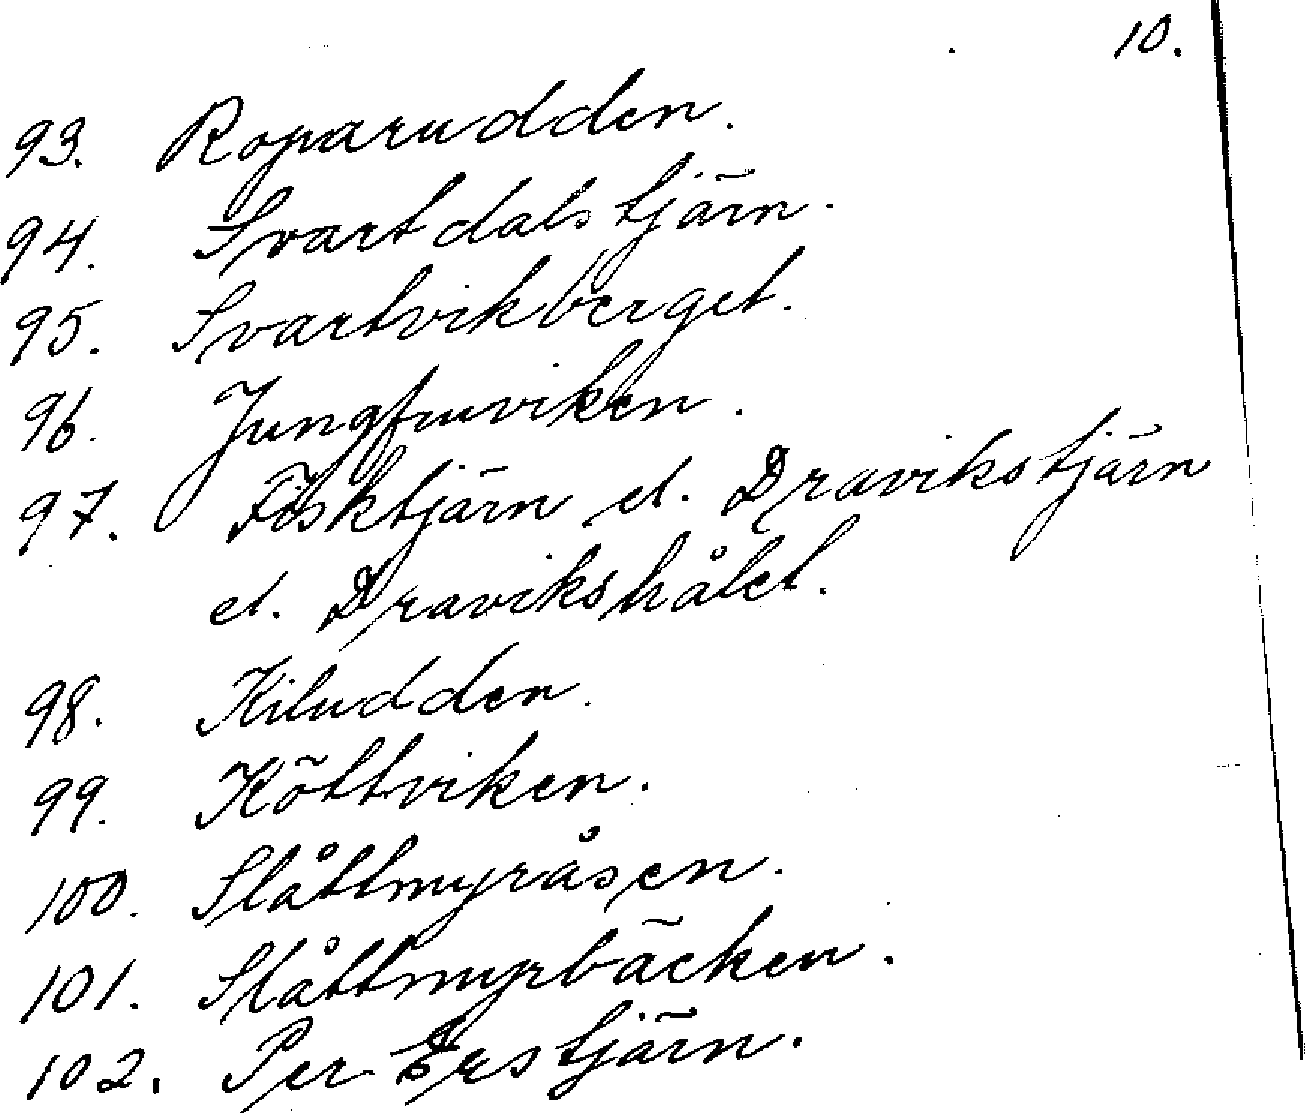 10.
93. Roparudden.
94. Svartdalstjärn.
95. Svartvikberget.
96. Jungfruviken.
97. Fisktjärn el. Dravikstjärn
el. Dravikshålet.
98. Kiludden.
99. Köttviken.
100. Slåttmyråsen.
101. Slåttmyrbäcken.
102. Per Erstjärn.